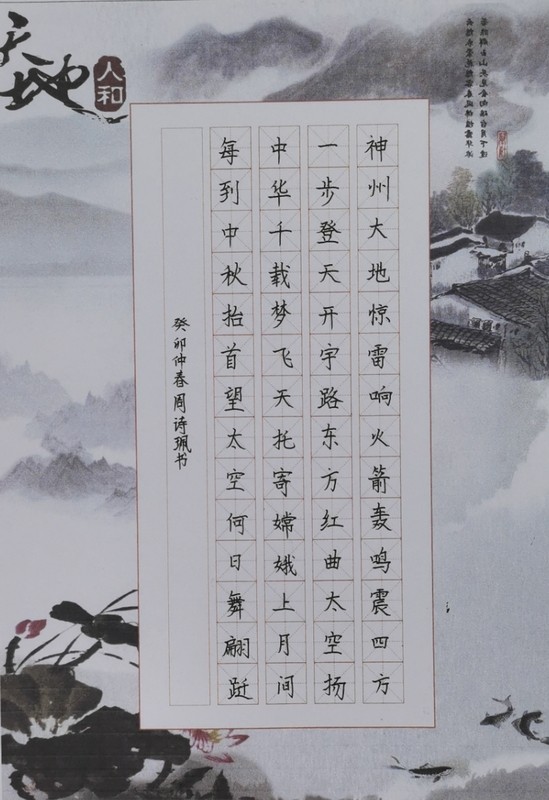 天地
人和
神州大地惊雷响火箭轰鸣震四方
一步登天开宇路东方红曲太空扬
中华千载梦飞天托寄嫦娥上月间
每到中秋抬首望太空何日舞翩跹
癸卯仲春周诗珮书